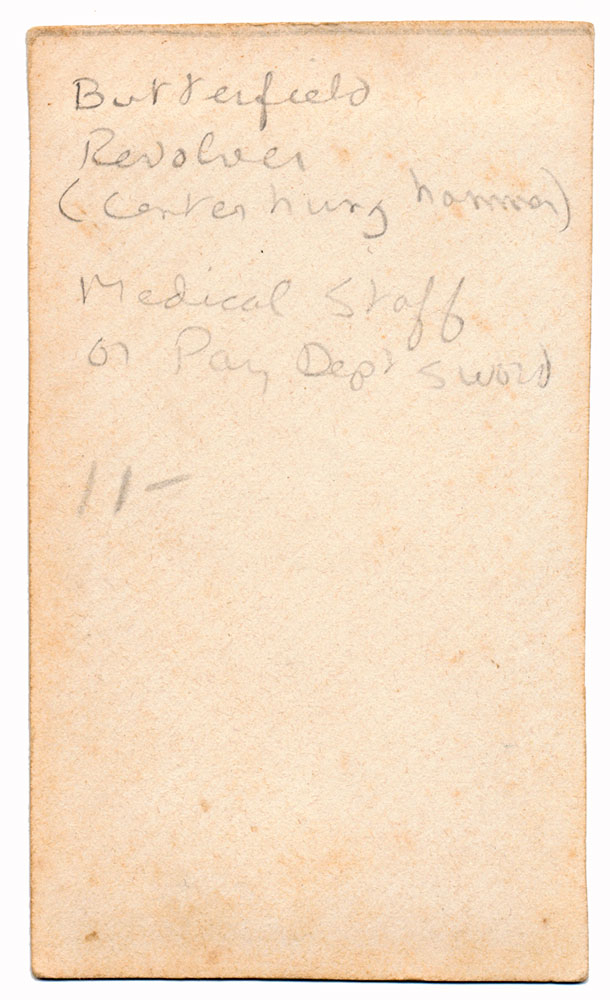 Butterfield
Revolver
(Center hung hammer)
Medical Staff
or Pay Dept sword
11-